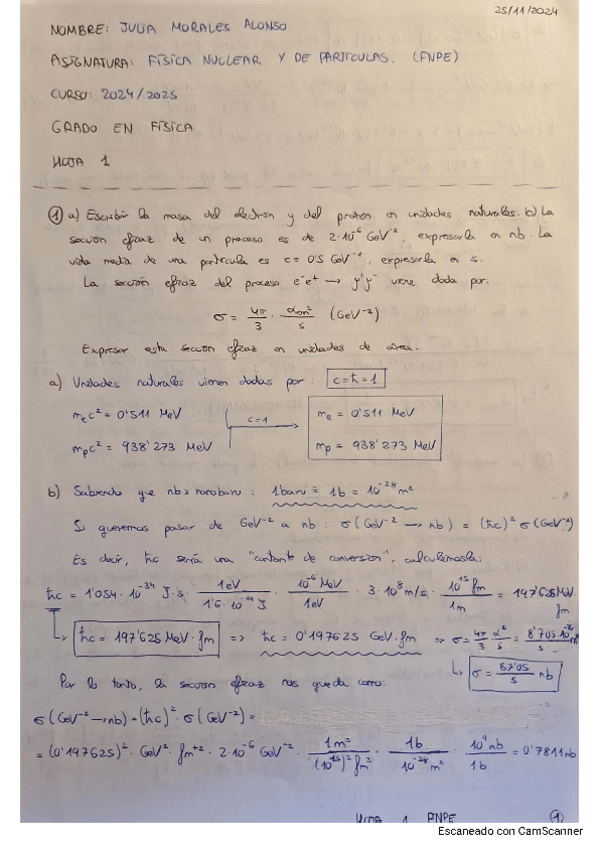 25/11/2024
NOMBRE: JULIA MORALES ALONSO
ASIGNATURA: FÍSICA NUCLEAR Y DE PARTÍCULAS. (FNPE)
CURSO: 2024/2025
GRADO EN FÍSICA
HOJA 1
① a) Escribir la masa del electron y del proton en unidades naturales. b) La
seccion eficaz de un proceso es de 2·10⁻⁶ GeV⁻², expresarla en nb. La
vida media de una partícula es τ = 0'5 GeV⁻¹, expresarla en s.
La sección eficaz del proceso e⁻e⁺ → μ⁺μ⁻ viene dada por:
σ = 4π/3 · αem²/s (GeV⁻²)
Expresar esta seccion eficaz en unidades de área.
a) Unidades naturales vienen dadas por: c = ħ = 1
mₑc² = 0'511 MeV c=1 mₑ = 0'511 MeV
mₚc² = 938'273 MeV mₚ = 938'273 MeV
b) Sabiendo que nb ≡ nanobarn : 1barn ≡ 1b = 10⁻²⁸ m²
Si queremos pasar de GeV⁻² a nb : σ(GeV⁻² → nb) = (ħc)² σ(GeV⁻²)
Es decir, ħc sería una "constante de conversion", calculémosla:
ħc = 1'054 · 10⁻³⁴ J·s · 1eV/1'6·10⁻¹⁹ J · 10⁻⁶ MeV/1eV · 3·10⁸ m/s · 10¹⁵ fm/1m = 197'625 MeV fm
ħc = 197'625 MeV·fm => ħc = 0'197625 GeV·fm => σ = 4π/3 α²/s = 8'705·10⁻³⁶/s m²
σ = 87'05/s nb
Por lo tanto, la seccion eficaz nos queda como:
σ(GeV⁻² → nb) = (ħc)² · σ(GeV⁻²) =
= (0'197625)² · GeV² · fm⁺² · 2·10⁻⁶ GeV⁻² · 1m²/(10¹⁵)² fm² · 1b/10⁻²⁸ m² · 10⁹ nb/1b = 0'7811 nb
HOJA 1 FNPE ①
Escaneado con CamScanner